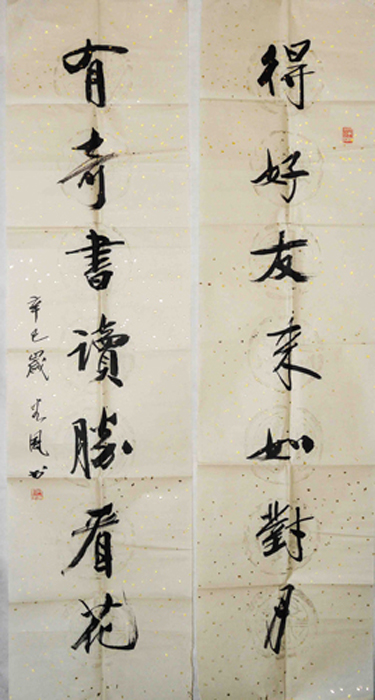 得好友来如對月
有奇書讀勝看花
辛巳歲